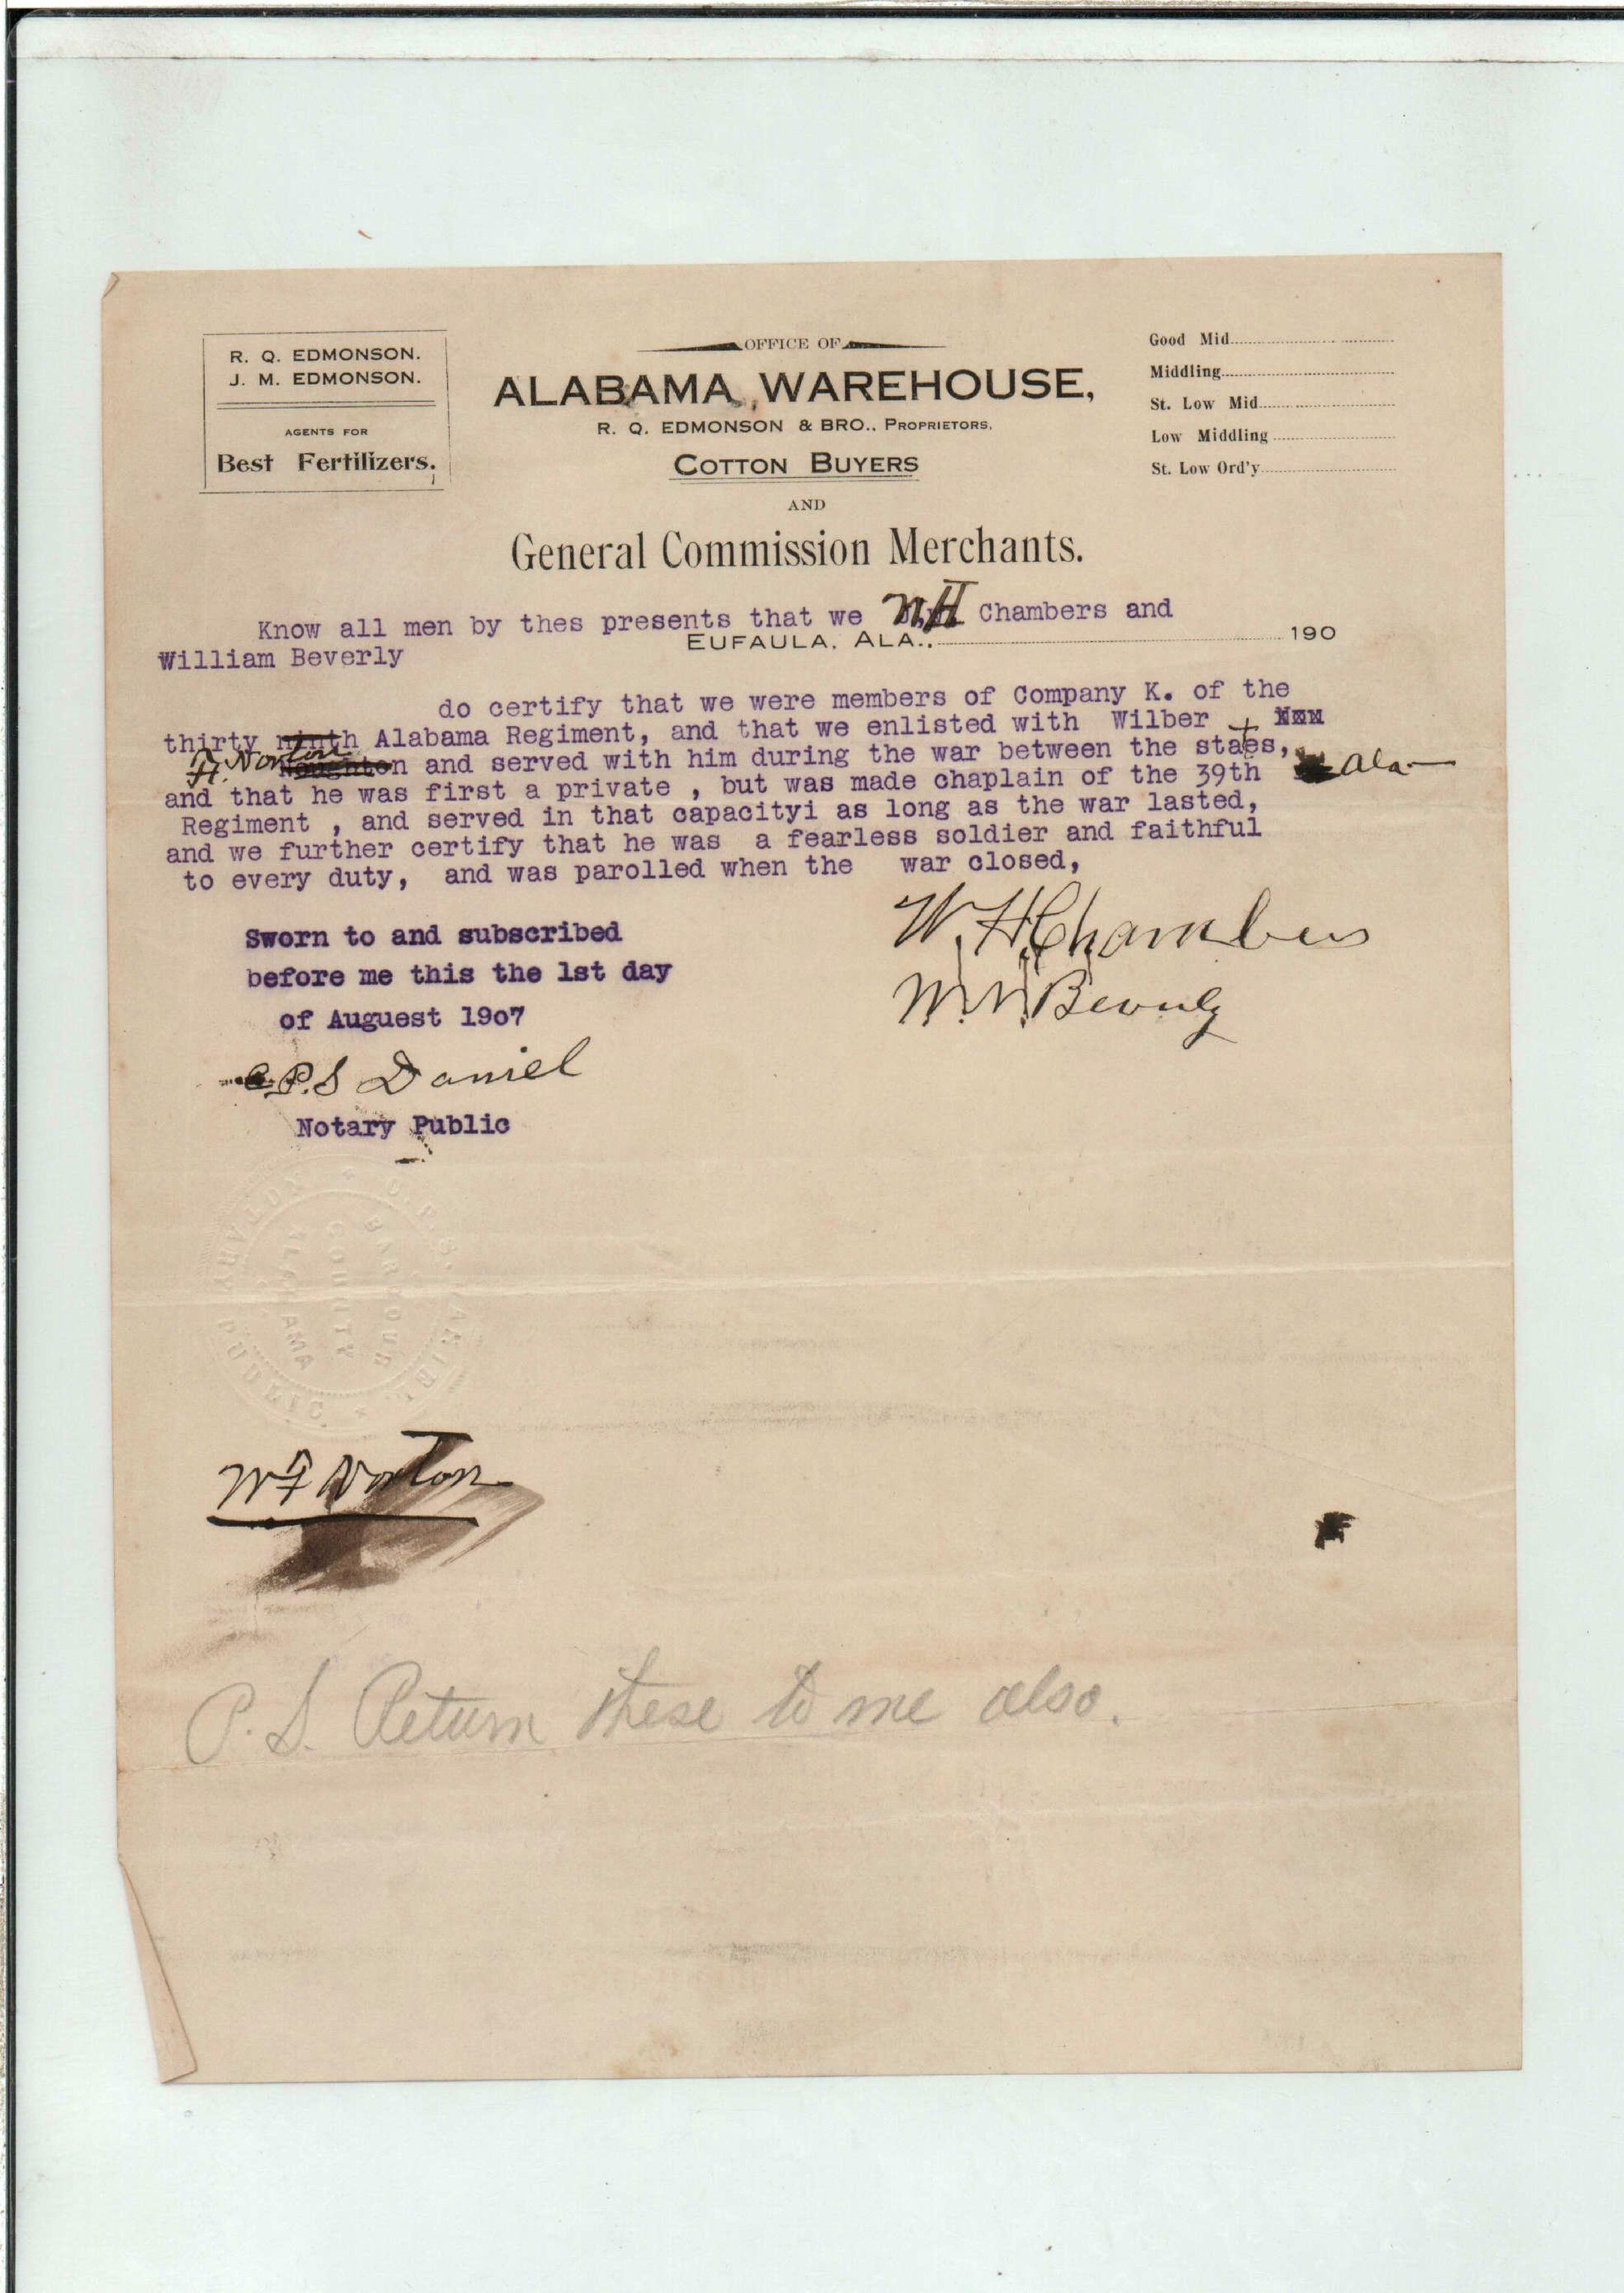 R. Q. EDMONSON.
J. M. EDMONSON.
AGENTS FOR
Best Fertilizers.
OFFICE OF
ALABAMA WAREHOUSE,
R. Q. EDMONSON & BRO., PROPRIETORS.
COTTON BUYERS
AND
General Commission Merchants.
Good Mid
Middling
St. Low Mid
Low Middling
St. Low Ord'y
Know all men by thes presents that we W.H Chambers and
EUFAULA, ALA., 190
William Beverly
do certify that we were members of Company K. of the
thirty ninth Alabama Regiment, and that we enlisted with Wilber
F. Norton and served with him during the war between the staes,
and that he was first a private , but was made chaplain of the 39th Ala
Regiment , and served in that capacityi as long as the war lasted,
and we further certify that he was a fearless soldier and faithful
to every duty, and was parolled when the war closed,
W. H. Chambers
W. W. Beverly
Sworn to and subscribed
before me this the 1st day
of Auguest 19o7
C.P.S Daniel
Notary Public
C. P. S. DANIEL
NOTARY PUBLIC.
BARBOUR
COUNTY
ALABAMA
W F Norton
P.S. Return these to me also.